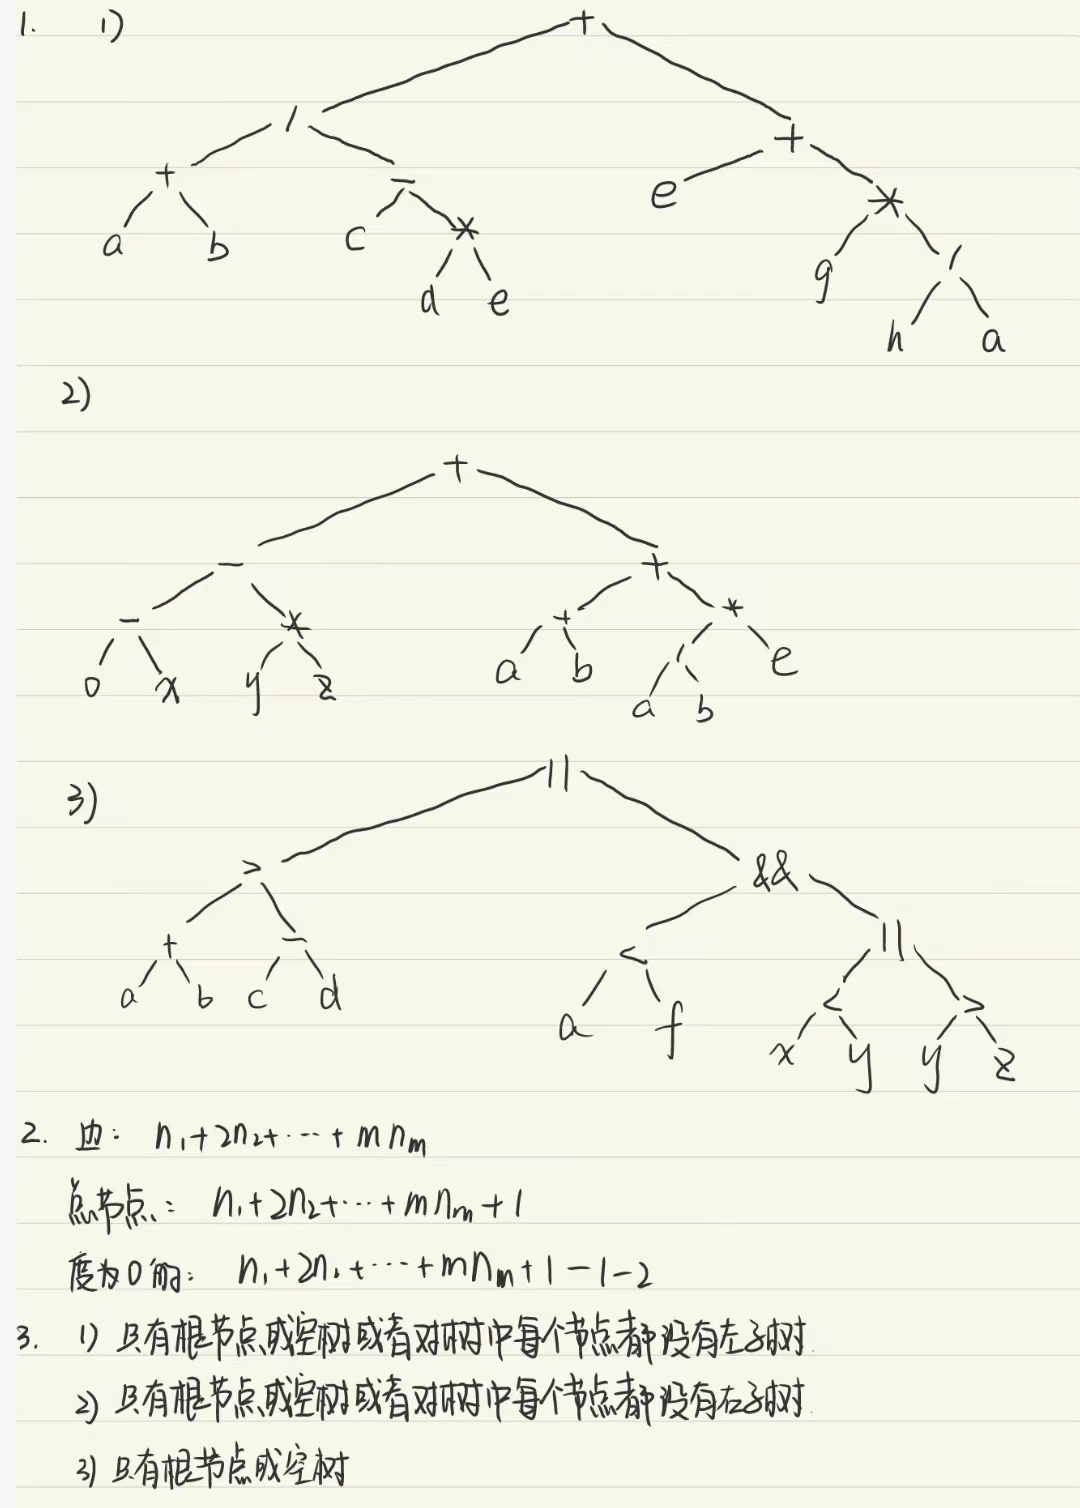 1. 1)
+
/ +
+ - e *
a b c * g /
d e h a
2)
+
- +
- * + *
0 x y z a b / e
a b
3)
||
> &&
+ - < ||
a b c d a f < >
x y y z
2. 边: n₁+2n₂+…+mnₘ
总节点: n₁+2n₂+…+mnₘ+1
度为0的: n₁+2n₂+…+mnₘ+1-1-2
3. 1) 只有根节点或空树或者对树中每个节点都没有左子树.
2) 只有根节点或空树或者对树中每个节点都没有右子树.
3) 只有根节点或空树